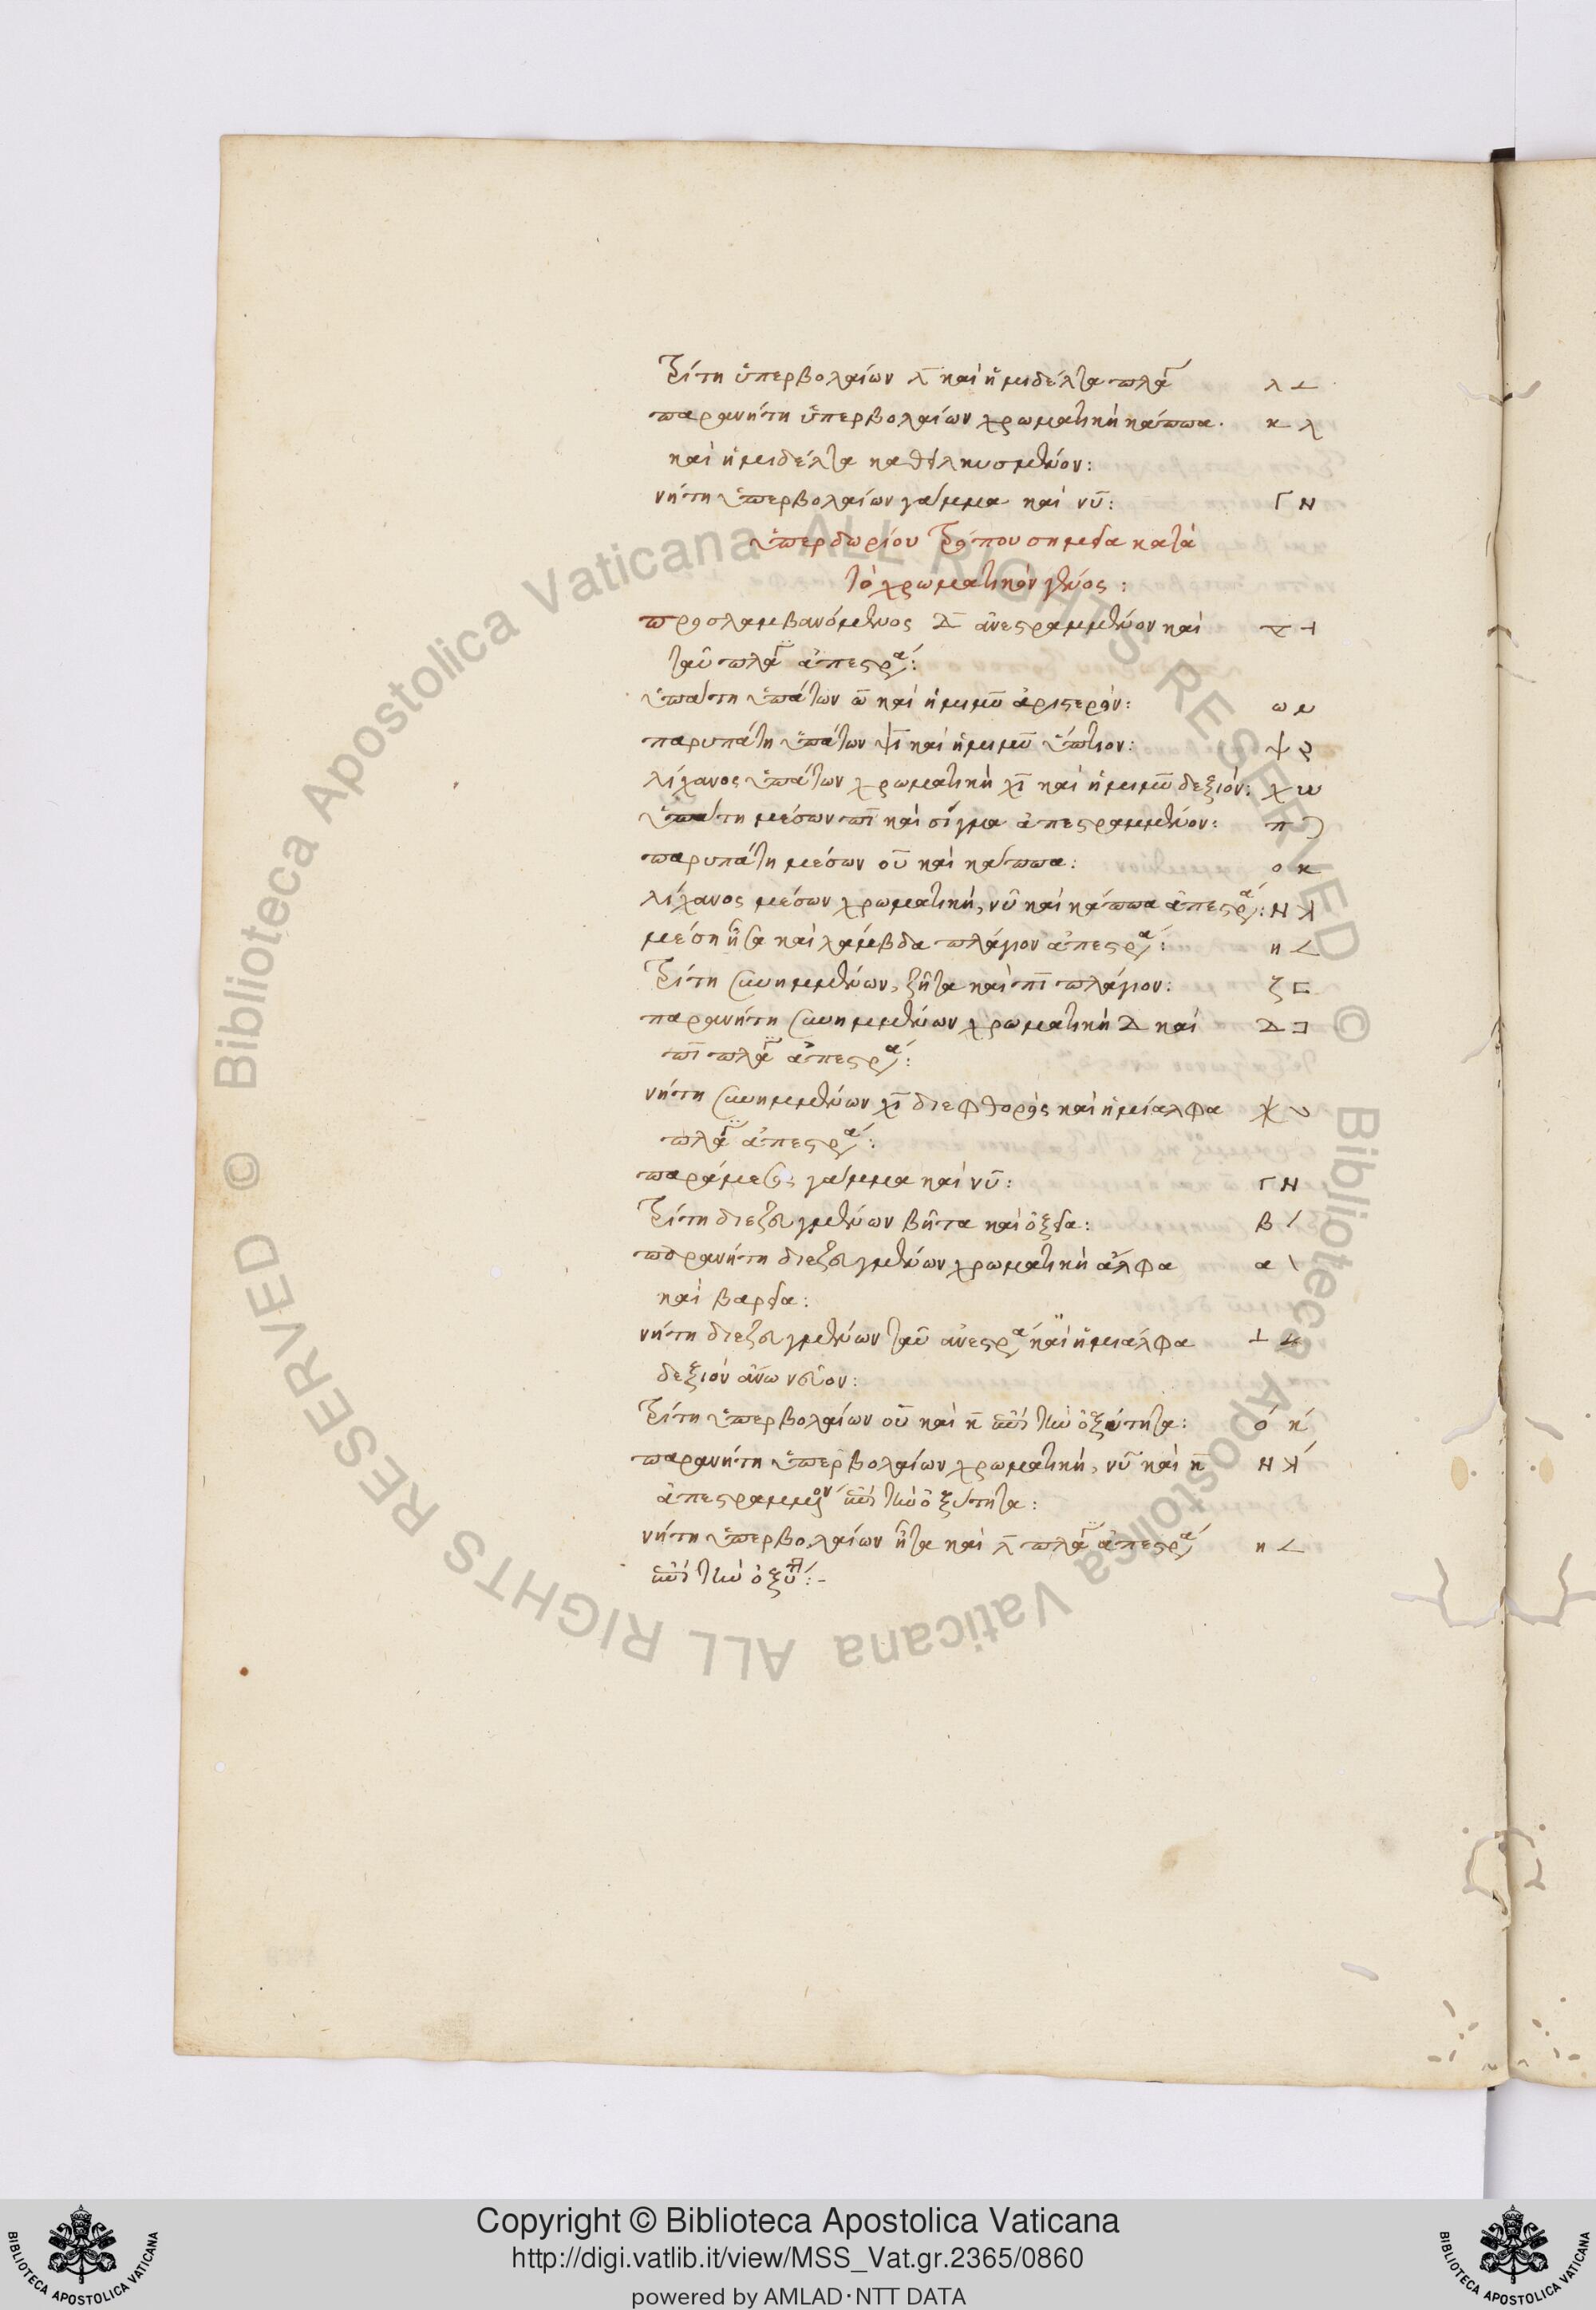 Τρίτη ὑπερβολαίων λ̄ καὶ ἡμιδέλτα πλάγ λ
παρανήτη ὑπερβολαίων χρωματικὴ κάππα. κ
καὶ ἡμιδέλτα καθειλκυσμένον:
νήτη ὑπερβολαίων γάμμα καὶ νῦ: Γ Ν
ὑπερδωρίου τρόπου σημεῖα κατὰ
τὸ χρωματικὸν γένος:
προσλαμβανόμενος Δ ἀνεστραμμένον καὶ
ταῦ πλάγ ἀπεστρα:
ὑπάτη ὑπάτων ω̄ καὶ ἡμιμῦ ἀριστερόν: ω
παρυπάτη ὑπάτων ψῖ καὶ ἡμιμῦ ὕπτιον: ψ
λίχανος ὑπάτων χρωματικὴ χῖ καὶ ἡμιμῦ δεξιόν: χ
ὑπάτη μέσων πῖ καὶ σίγμα ἀπεστραμμένον: π Ͻ
παρυπάτη μέσων οὖ καὶ κάππα: ο κ
λίχανος μέσων χρωματικὴ, νῦ καὶ κάππα ἀπεστρα: Ν ꓘ
μέση ἦτα καὶ λάμβδα πλάγιον ἀπεστρα: η <
Τρίτη συνημμένων, ζῆτα καὶ πῖ πλάγιον: ζ ⊏
παρανήτη συνημμένων χρωματικὴ Δ καὶ Δ ⊐
πῖ πλάγ ἀπεστρα:
νήτη συνημμένων χῖ διεφθορὸς καὶ ἡμίαλφα
πλάγ ἀπεστρα:
παράμεσος γάμμα καὶ νῦ: Γ Ν
Τρίτη διεζευγμένων βῆτα καὶ ὀξεῖα: β /
παρανήτη διεζευγμένων χρωματικὴ ἄλφα α \
καὶ βαρεῖα:
νήτη διεζευγμένων ταῦ ἀνεστρα καὶ ἡμιάλφα ⊥
δεξιὸν ἄνω νεῦον:
Τρίτη ὑπερβολαίων οὖ καὶ κ̄ ἐπὶ τὴν ὀξύτητα: ό κ́
παρανήτη ὑπερβολαίων χρωματικὴ, νῦ καὶ κ̄ Ν ꓘ́
ἀπεστραμμένον ἐπὶ τὴν ὀξύτητα:
νήτη ὑπερβολαίων ἦτα καὶ λ̄ πλάγ ἀπεστρα η <
ἐπὶ τὴν ὀξύτη:-
Copyright © Biblioteca Apostolica Vaticana
http://digi.vatlib.it/view/MSS_Vat.gr.2365/0860
powered by AMLAD·NTT DATA
BIBLIOTECA APOSTOLICA VATICANA
BIBLIOTECA APOSTOLICA VATICANA
© Biblioteca Apostolica Vaticana ALL RIGHTS RESERVED
© Biblioteca Apostolica Vaticana ALL RIGHTS RESERVED